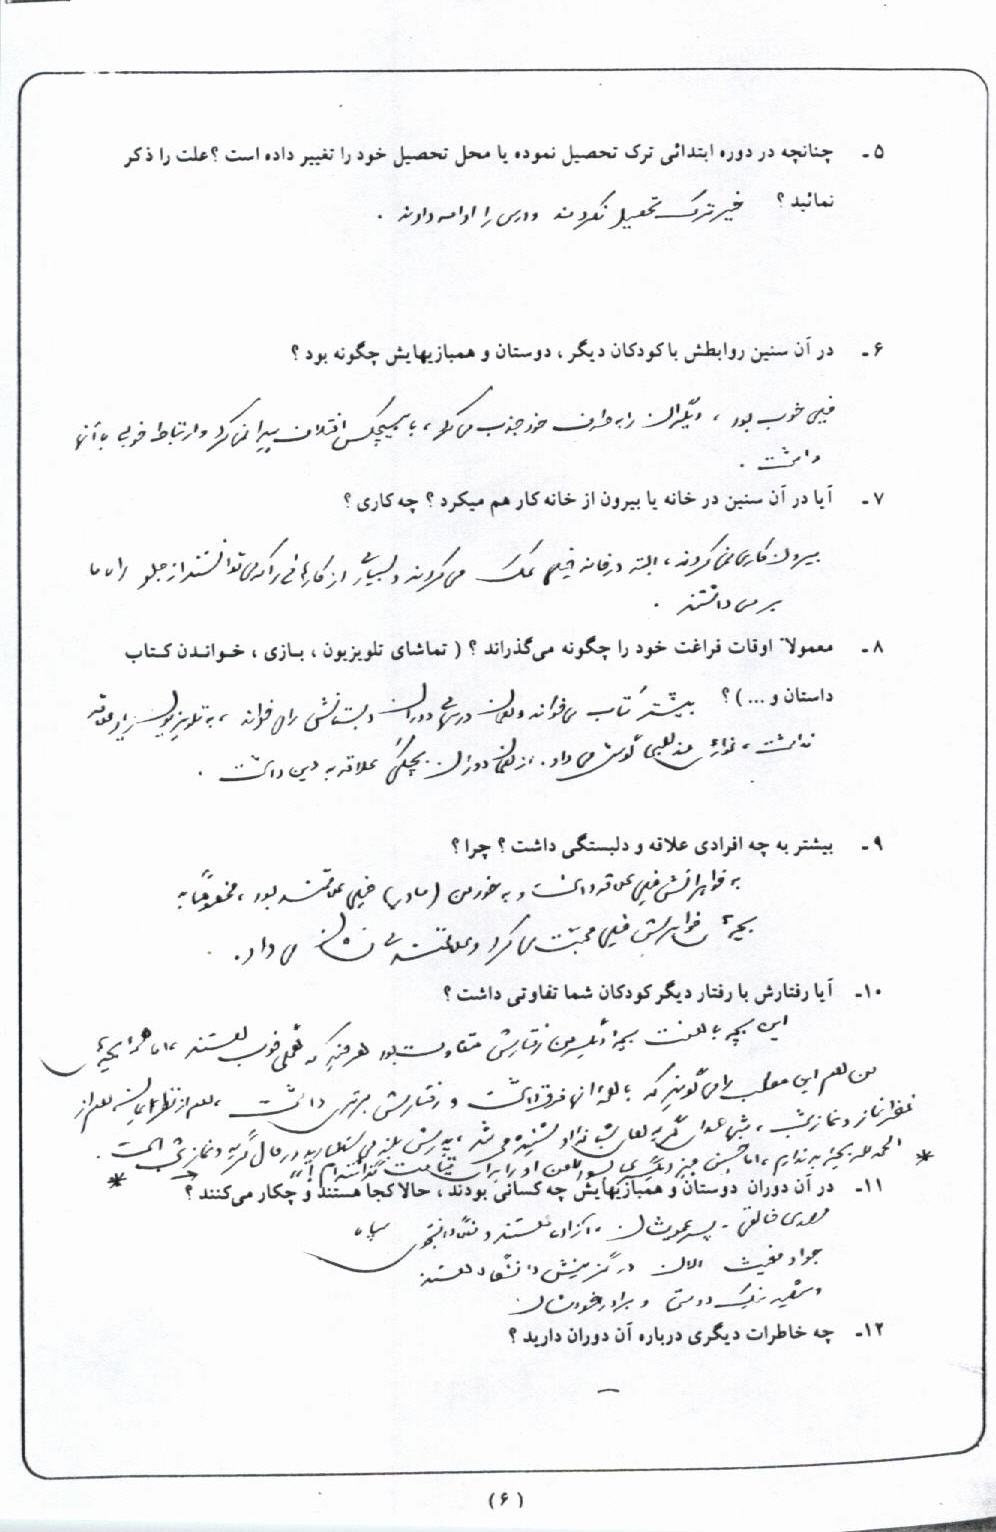 ۵ـ چنانچه در دوره ابتدائی ترک تحصیل نموده یا محل تحصیل خود را تغییر داده است ؟ علت را ذکر
نمائید ؟ خیر ترک تحصیل نکردند و درس را ادامه دادند .
۶ـ در آن سنین روابطش با کودکان دیگر ، دوستان و همبازیهایش چگونه بود ؟
خیلی خوب بود ، دیگران را به طرف خود جذب می‌کرد ، با هیچکس اختلاف پیدا نمی‌کرد و ارتباط خوبی با آنها
داشت .
۷ـ آیا در آن سنین در خانه یا بیرون از خانه کار هم میکرد ؟ چه کاری ؟
بیرون کاری نمی‌کردند ، البته در خانه خیلی کمک می‌کردند و بسیاری از کارهائی را که می‌توانستند از جلو راه ما
بر می داشتند .
۸ـ معمولاً اوقات فراغت خود را چگونه می‌گذراند ؟ ( تماشای تلویزیون ، بازی ، خواندن کتاب
داستان و ... ) ؟ بیشتر کتاب می‌خواند و همان درسهای دوران دبستانش را می‌خواند ، به تلویزیون زیاد علاقه
نداشت ، نوارهای گوش می داد . از همان دوران بچگی علاقه به دین داشت .
۹ـ بیشتر به چه افرادی علاقه و دلبستگی داشت ؟ چرا ؟
به خواهرانش خیلی علاقه داشت و به خود من (مادر) خیلی علاقمند بود ، مخصوصاً به
بچهٔ خواهرش خیلی محبت می کرد و علاقمندی نشان می داد .
۱۰ـ آیا رفتارش با رفتار دیگر کودکان شما تفاوتی داشت ؟
این بچه با هفت بچهٔ دیگر من رفتارش متفاوت بود هر چند که همگی خوب هستند ، اما همهٔ بچه‌های
من هم این مطلب را می گویند که با همهٔ آنها فرق داشت و رفتارش برتری داشت ، هم از نظر ایمان ، هم از
نظر نماز و نماز شب ، شبها صدای گریه‌های شبانه او شنیده می شد ،
الحمدلله بچهٔ بد ندارم ، اما
۱۱ـ در آن دوران دوستان و همبازیهایش چه کسانی بودند ، حالا کجا هستند و چکار می‌کنند ؟
مهدی خالقی - پسر عمویشان - آزاده هستند و دانشجوی سپاه
جواد مغیث الان در گزینش دانشگاه هستند
و سعید نیک دوستی و برادر خودشان
۱۲ـ چه خاطرات دیگری درباره آن دوران دارید ؟
—
( ۶ )